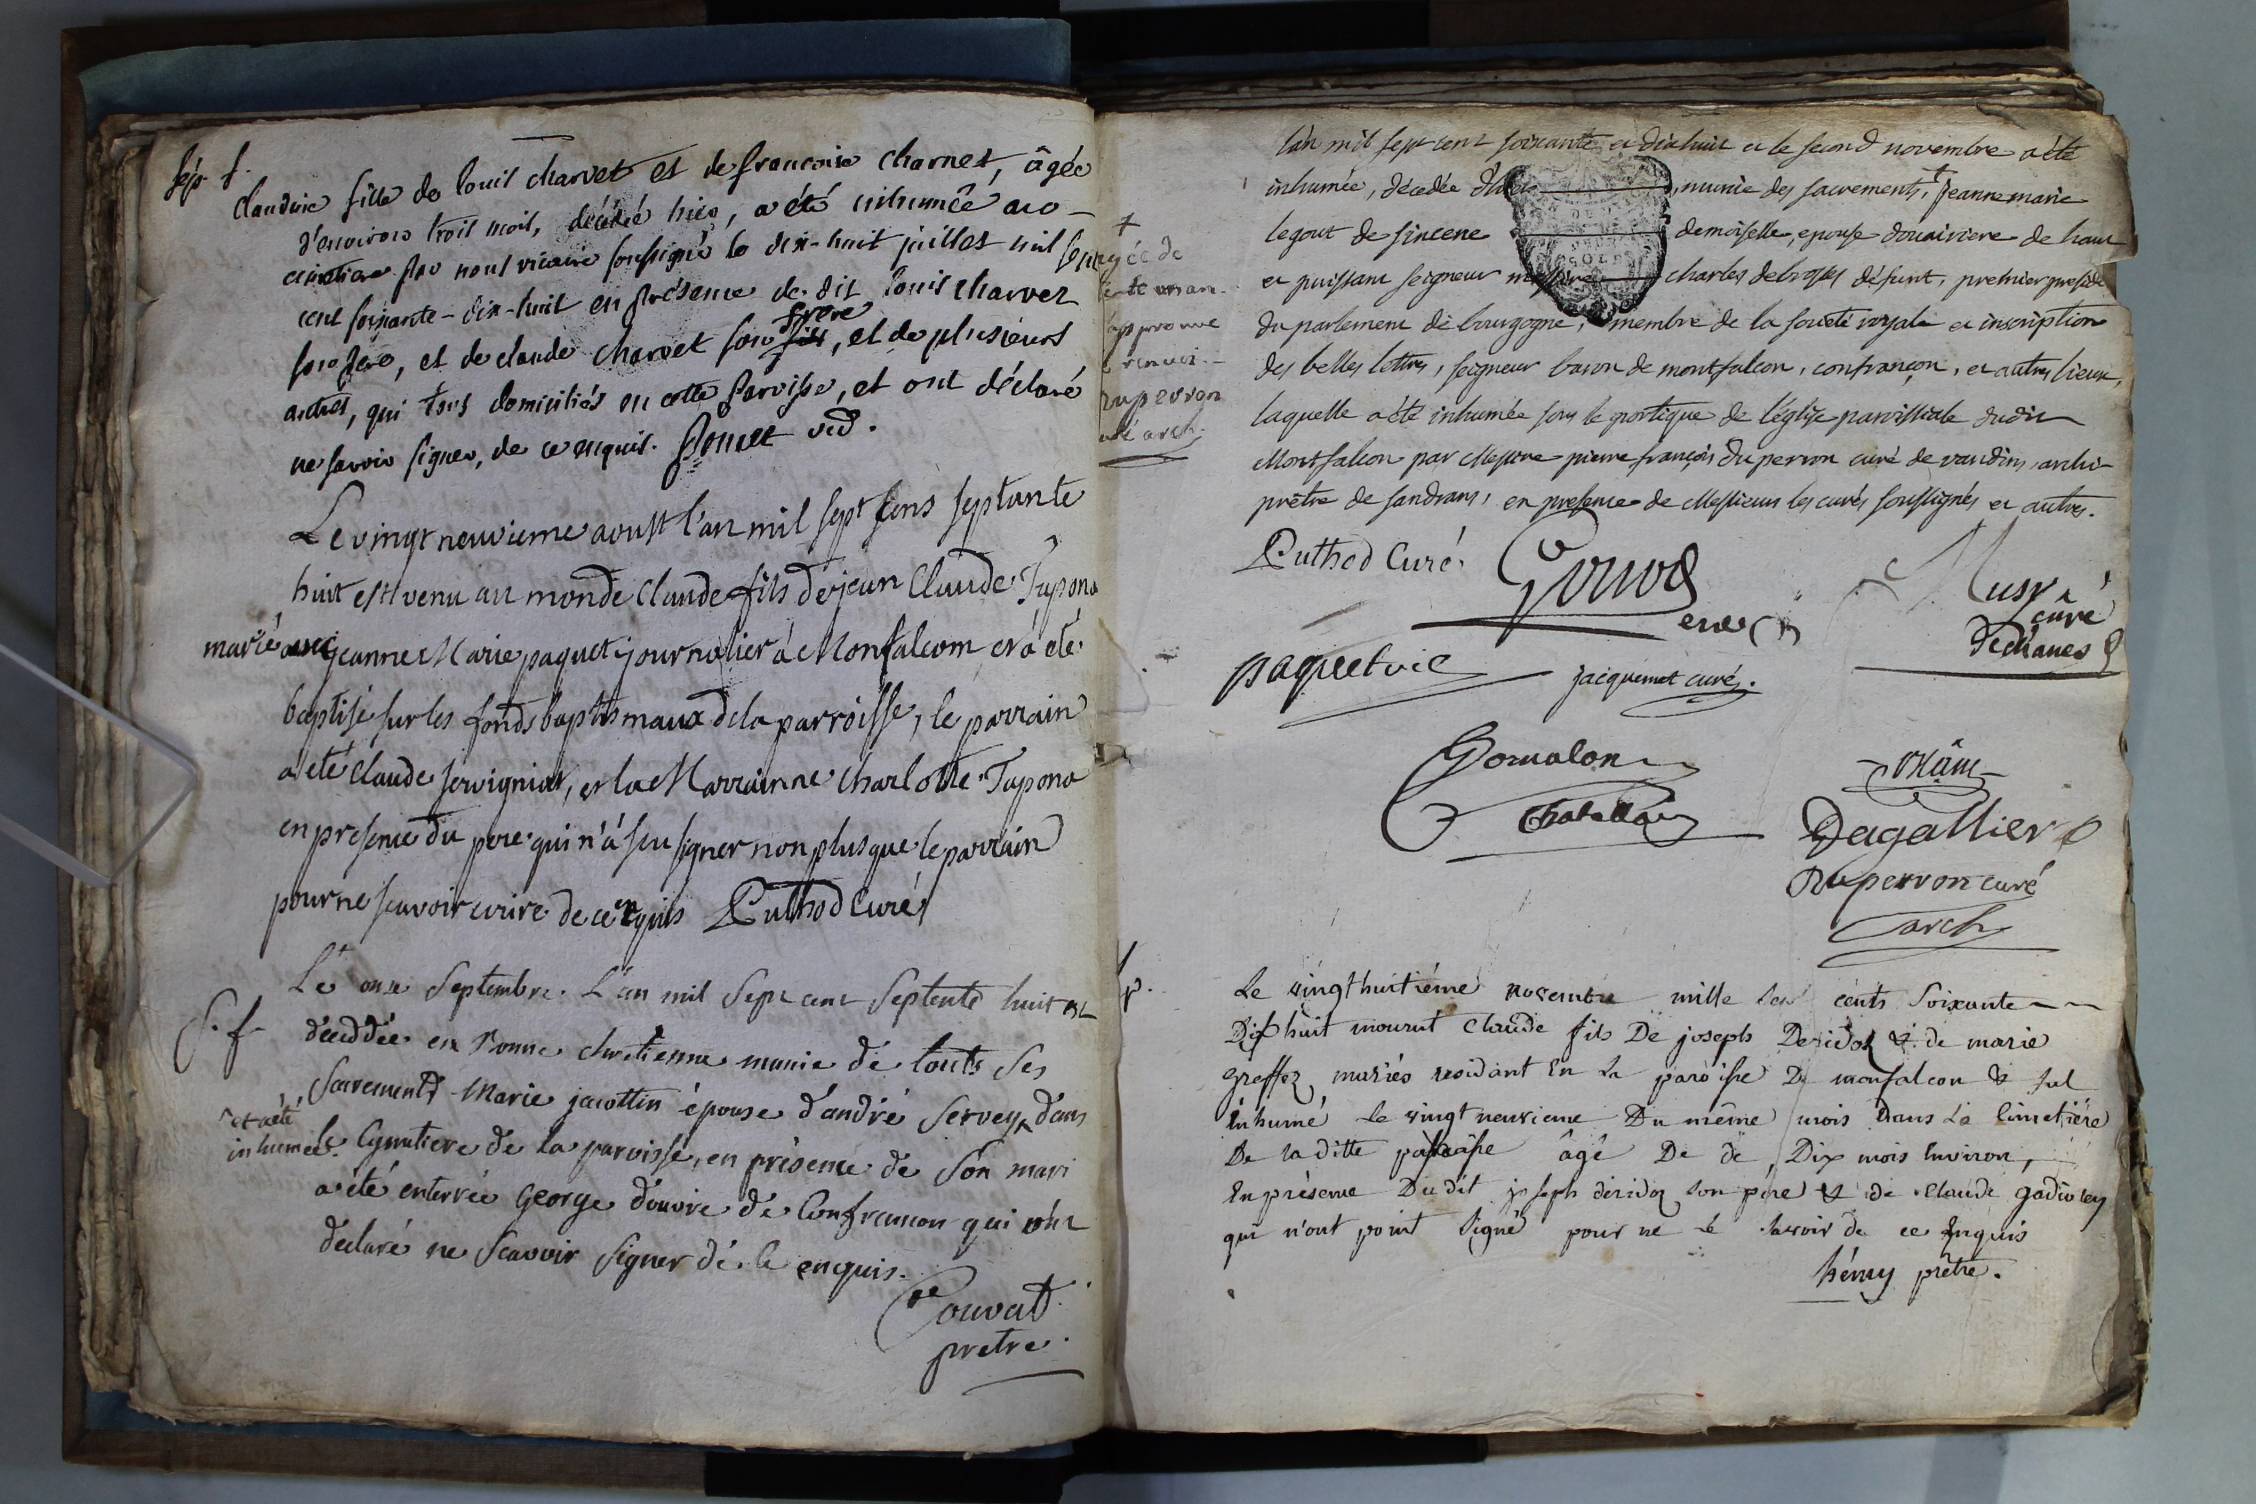 Sép. f.
Claudine fille de louis charvet et de francoise charnet, âgée
d'environ trois mois, décédé hier, a été inhumée au
cimetiere par nous vicaire soussigné le dix-huit juillet mil sept
cent soixante-dix-huit en présence de dit louis charvet
son pere, et de claude charvet son frere, et de plusieurs
autres, qui tous domiciliés en cette paroisse, et ont déclaré
ne savoir signer, de ce enquis. poncet vic.
Le vingt neuvieme aoust l'an mil sept cens septante
huit est venu au monde Claude fils de jean Claude Tupona
marié avec jeanne Marie paquet journalier à Monfalcom et à eté
baptisé sur les fonds baptismaux de la parroisse, le parrain
a eté Claude servigniat, et la Marrainne Charlotte Tupona
en presence du pere qui n'à scu signer non plus que le parrain
pour ne scavoir ecrire de ce enquis Puthod Curé
S. f.
Le onze Septembre L'an mil Sept cent Septente huit est
décedée en Bonne chretienne munie de touts Ses
Sacrements Marie jacottin épouse d'andré Servey, dans
^ et a été
inhumée
le Cymetiere de la paroisse, en présence de Son mari
a été enterrée George douvre de Confrancon qui ont
déclaré ne Scavoir Signer de Ce enquis.
Couvat
pretre
l'an mil sept cent soixante et dix huit et le second novembre a été
inhumée, décedée munie des sacrements, + jeanne marie
legout de sincene demoiselle, epouse douairiere de haut
et puissant seigneur messire charles debrosses défunt, premier preside
du parlement de bourgogne, membre de la société royale et inscription
des belles lettres, seigneur baron de montfalcon, confrançon, et autres lieux,
laquelle a été inhumée sous le portique de l'église paroissiale dudit
Montfalcon par Messire pierre françois Duperron curé de vandins, archi-
prêtre de sandrans, en presence de Messieurs les curés soussignés et autres.
+
agée de
un an
approuvé
renvoi
Duperron
curé arch.
Puthod Curé.
Musy
curé
de chanes
paquet vic
jacquemet curé.
Gomalon
Chatellain
Dagallier
Duperron curé
arch
Sp.
Le vingt huitiéme novembre mille sept cents soixante
Dix huit mourut Claude fils De joseph Deridoz & de marie
greffoz mariés residant En La paroisse De monfalcon & fut
Inhumé Le vingt neuvieme Du même mois Dans Le Cimetiére
De la ditte paroisse âgé De de Dix mois Environ,
En présence Du dit joseph deridoz son pere & de Claude gadioley
qui n'ont point signé pour ne le savoir de ce Enquis
hémy prêtre.